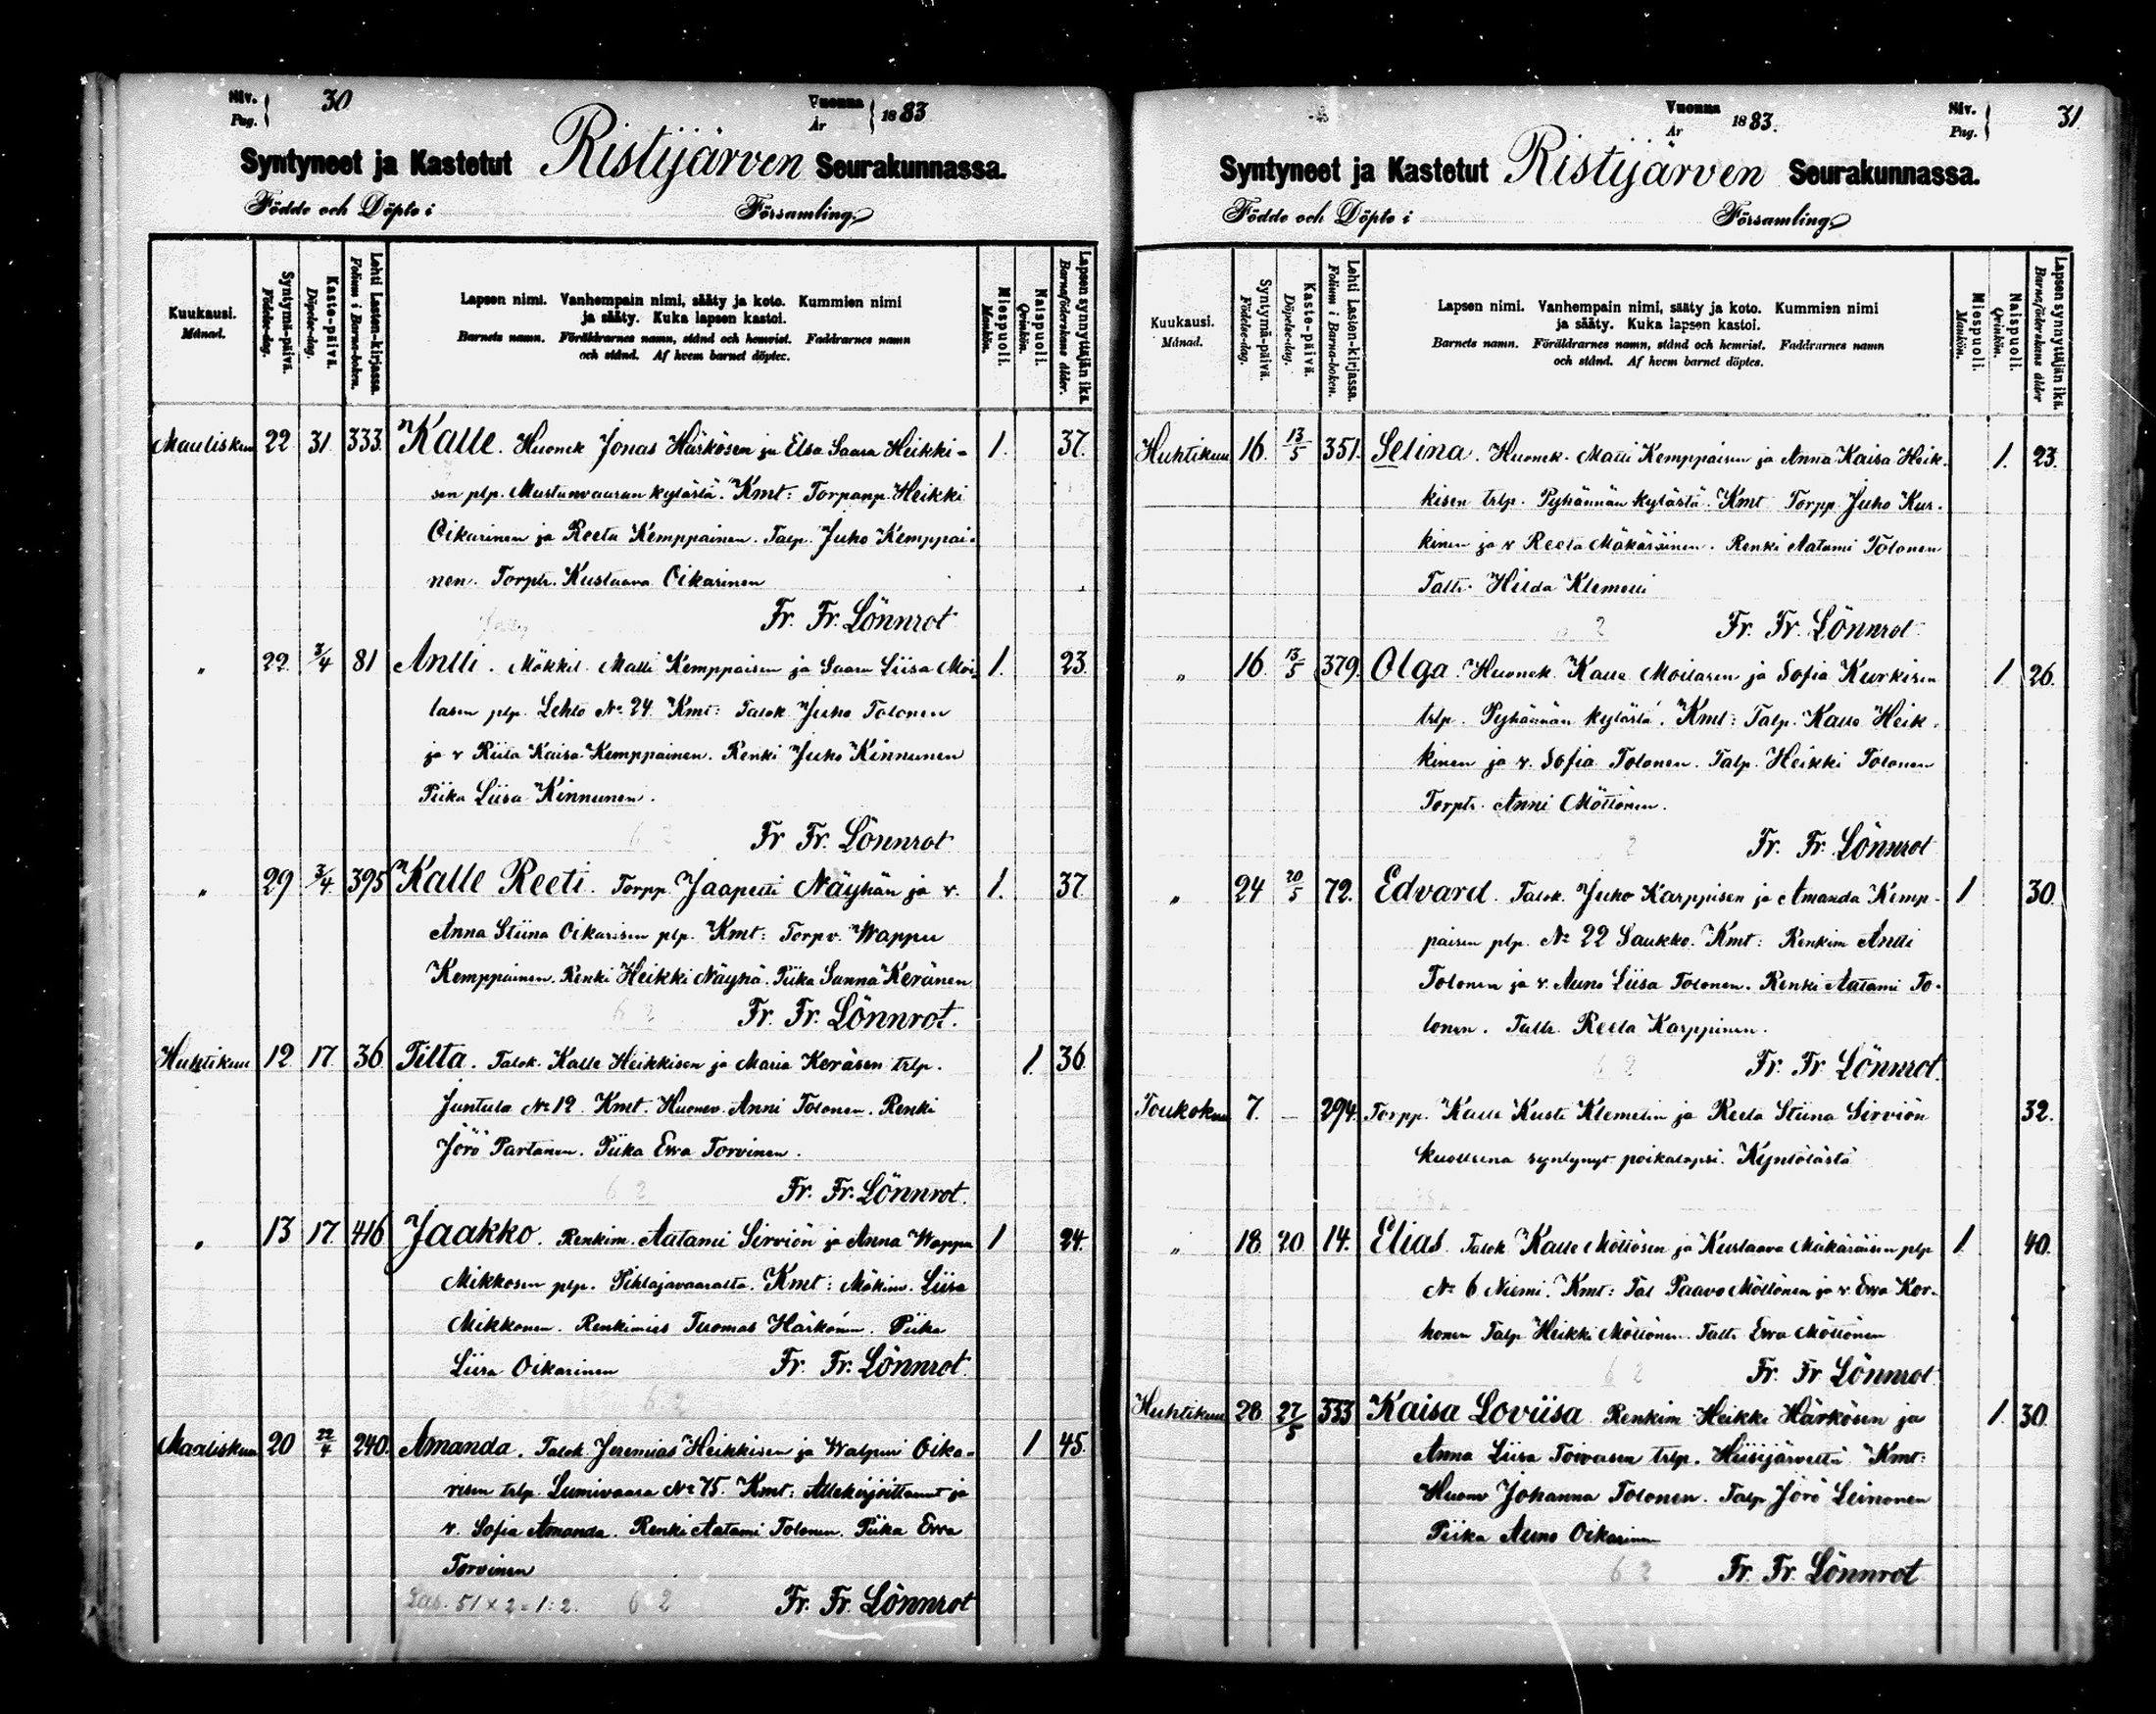 Siv. 30
Pag.
Vuonna
År 1883
Syntyneet ja Kastetut Ristijärven Seurakunnassa.
Födde och Döpte i Församling
Kuukausi.
Månad.
Syntymä-päivä.
Födelse-dag.
Kaste-päivä.
Döpelse-dag.
Lehti Lasten-kirjassa.
Folium i Barna-boken.
Lapsen nimi. Vanhempain nimi, sääty ja koto. Kummien nimi
ja sääty. Kuka lapsen kastoi.
Barnets namn. Föräldrarnes namn, stånd och hemvist. Faddrarnes namn
och stånd. Af hvem barnet döptes.
Miespuoli.
Mankön.
Naispuoli.
Qvinkön.
Lapsen synnyttäjän ikä.
Barnaföderskans ålder.
Maaliskuu 22 31 333 Kalle. Huonek Jonas Härkösen ja Elsa Saara Heikki- 1. 37.
sen plp. Mustanvaaran kylästä. Kmt: Torpanp. Heikki
Oikarinen ja Reeta Kemppainen. Talp. Juho Kemppai-
nen. Torptr. Kustaava Oikarinen
Fr. Fr. Lönnrot
" 22 3/4 81 Antti. Mökkil. Matti Kemppaisen ja Saara Liisa Moi- 1. 23.
lasen plp. Lehto No 24. Kmt: Talok. Juho Tolonen
ja v Riita Kaisa Kemppainen. Renki Juho Kinnunen
Piika Liisa Kinnunen.
6 2 Fr Fr. Lönnrot
" 29 3/4 395 Kalle Reeti. Torpp. Jaapetti Näyhän ja v. 1. 37.
Anna Stiina Oikarisen plp. Kmt: Torpv. Wappu
Kemppainen. Renki Heikki Näyhä. Piika Sanna Keränen
6 2 Fr. Fr. Lönnrot.
Huhtikuu 12 17 36 Tilta. Talok. Kalle Heikkisen ja Maria Keräsen trlp. 1. 36.
Juntula No 12. Kmt. Huonev. Anni Tolonen. Renki
Jörö Partanen. Piika Ewa Torvinen.
6 2 Fr. Fr. Lönnrot.
" 13 17 416 Jaakko. Renkim. Aatami Sirviön ja Anna Wappu 1 24.
Mikkosen plp. Pihlajavaaralta. Kmt: Mökinv. Liisa
Mikkonen. Renkimies Tuomas Härkönen. Piika
Liisa Oikarinen Fr. Fr. Lönnrot.
6 2
Maaliskuu 20 22/4 240. Amanda. Talok. Jeremias Heikkisen ja Walpuri Oika- 1 45.
risen trlp. Lumivaara No 75. Kmt: Allekirjoittanut ja
v. Sofia Amanda. Renki Aatami Tolonen. Piika Ewa
Torvinen
51 x 2 = 1:2. 6 2 Fr. Fr. Lönnrot
Vuonna
År 1883.
Siv. 31.
Pag.
Syntyneet ja Kastetut Ristijärven Seurakunnassa.
Födde och Döpte i Församling
Kuukausi.
Månad.
Syntymä-päivä.
Födelse-dag.
Kaste-päivä.
Döpelse-dag.
Lehti Lasten-kirjassa.
Folium i Barna-boken.
Lapsen nimi. Vanhempain nimi, sääty ja koto. Kummien nimi
ja sääty. Kuka lapsen kastoi.
Barnets namn. Föräldrarnes namn, stånd och hemvist. Faddrarnes namn
och stånd. Af hvem barnet döptes.
Miespuoli.
Mankön.
Naispuoli.
Qvinkön.
Lapsen synnyttäjän ikä.
Barnaföderskans ålder
Huhtikuu 16. 13/5 351. Selina. Huonek. Matti Kemppaisen ja Anna Kaisa Heik- 1. 23.
kisen trlp. Pyhännän kylästä. Kmt Torpp. Juho Kur-
kinen ja v Reeta Mäkäräinen. Renki Aatami Tolonen
Taltr. Hilda Klemetti
2 Fr. Fr. Lönnrot
" 16. 13/5 379. Olga. Huonek. Kalle Moilasen ja Sofia Kurkisen 1 26.
trlp. Pyhännän kylästä. Kmt: Talp. Kalle Heik-
kinen ja v. Sofia Tolonen. Talp. Heikki Tolonen
Torptr. Anni Möttönen.
2 Fr. Fr. Lönnrot
" 24 20/5 72. Edvard. Talok. Juho Karppisen ja Amanda Kemp- 1 30.
paisen plp. No 22 Saukko. Kmt: Renkim Antti
Tolonen ja v. Auno Liisa Tolonen. Renki Aatami To-
lonen. Taltr. Reeta Karppinen.
6 2 Fr. Fr Lönnrot.
Toukokuu 7. — 294. Torpp. Kalle Kusti Klemetin ja Reeta Stiina Sirviön 32.
kuolleena syntynyt poikalapsi. Kyntölästä
" 18. 20. 14. Elias. Talok. Kalle Möttösen ja Kustaava Mäkäräisen plp 1. 40.
No 6 Niemi. Kmt: Tal Paavo Möttönen ja v. Ewa Kor-
honen Talp Heikki Möttönen. Taltr. Ewa Möttönen
6 2 Fr. Fr Lönnrot
Huhtikuu 28 27/5 333 Kaisa Loviisa Renkim Heikki Härkösen ja 1. 30.
Anna Liisa Toivosen trlp. Hiisijärveltä Kmt:
Huonv Johanna Tolonen. Talp Jörö Leinonen
Piika Auno Oikarinen
6 2 Fr. Fr. Lönnrot